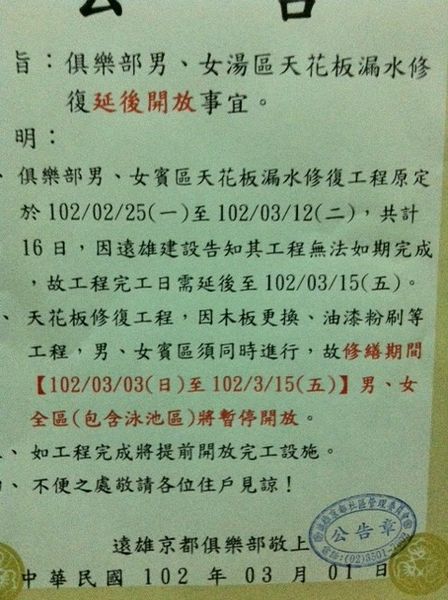 公 告
旨：俱樂部男、女湯區天花板漏水修
復延後開放事宜。
明：
、俱樂部男、女賓區天花板漏水修復工程原定
於 102/02/25(一)至 102/03/12(二)，共計
16 日，因遠雄建設告知其工程無法如期完成
，故工程完工日需延後至 102/03/15(五)。
、天花板修復工程，因木板更換、油漆粉刷等
工程，男、女賓區須同時進行，故修繕期間
【102/03/03(日)至 102/3/15(五)】男、女
全區(包含泳池區)將暫停開放。
、如工程完成將提前開放完工設施。
、不便之處敬請各位住戶見諒！
遠雄京都俱樂部敬上
京都社區管理委員會
公告章
(02)8501-
中華民國 102 年 03 月 01 日